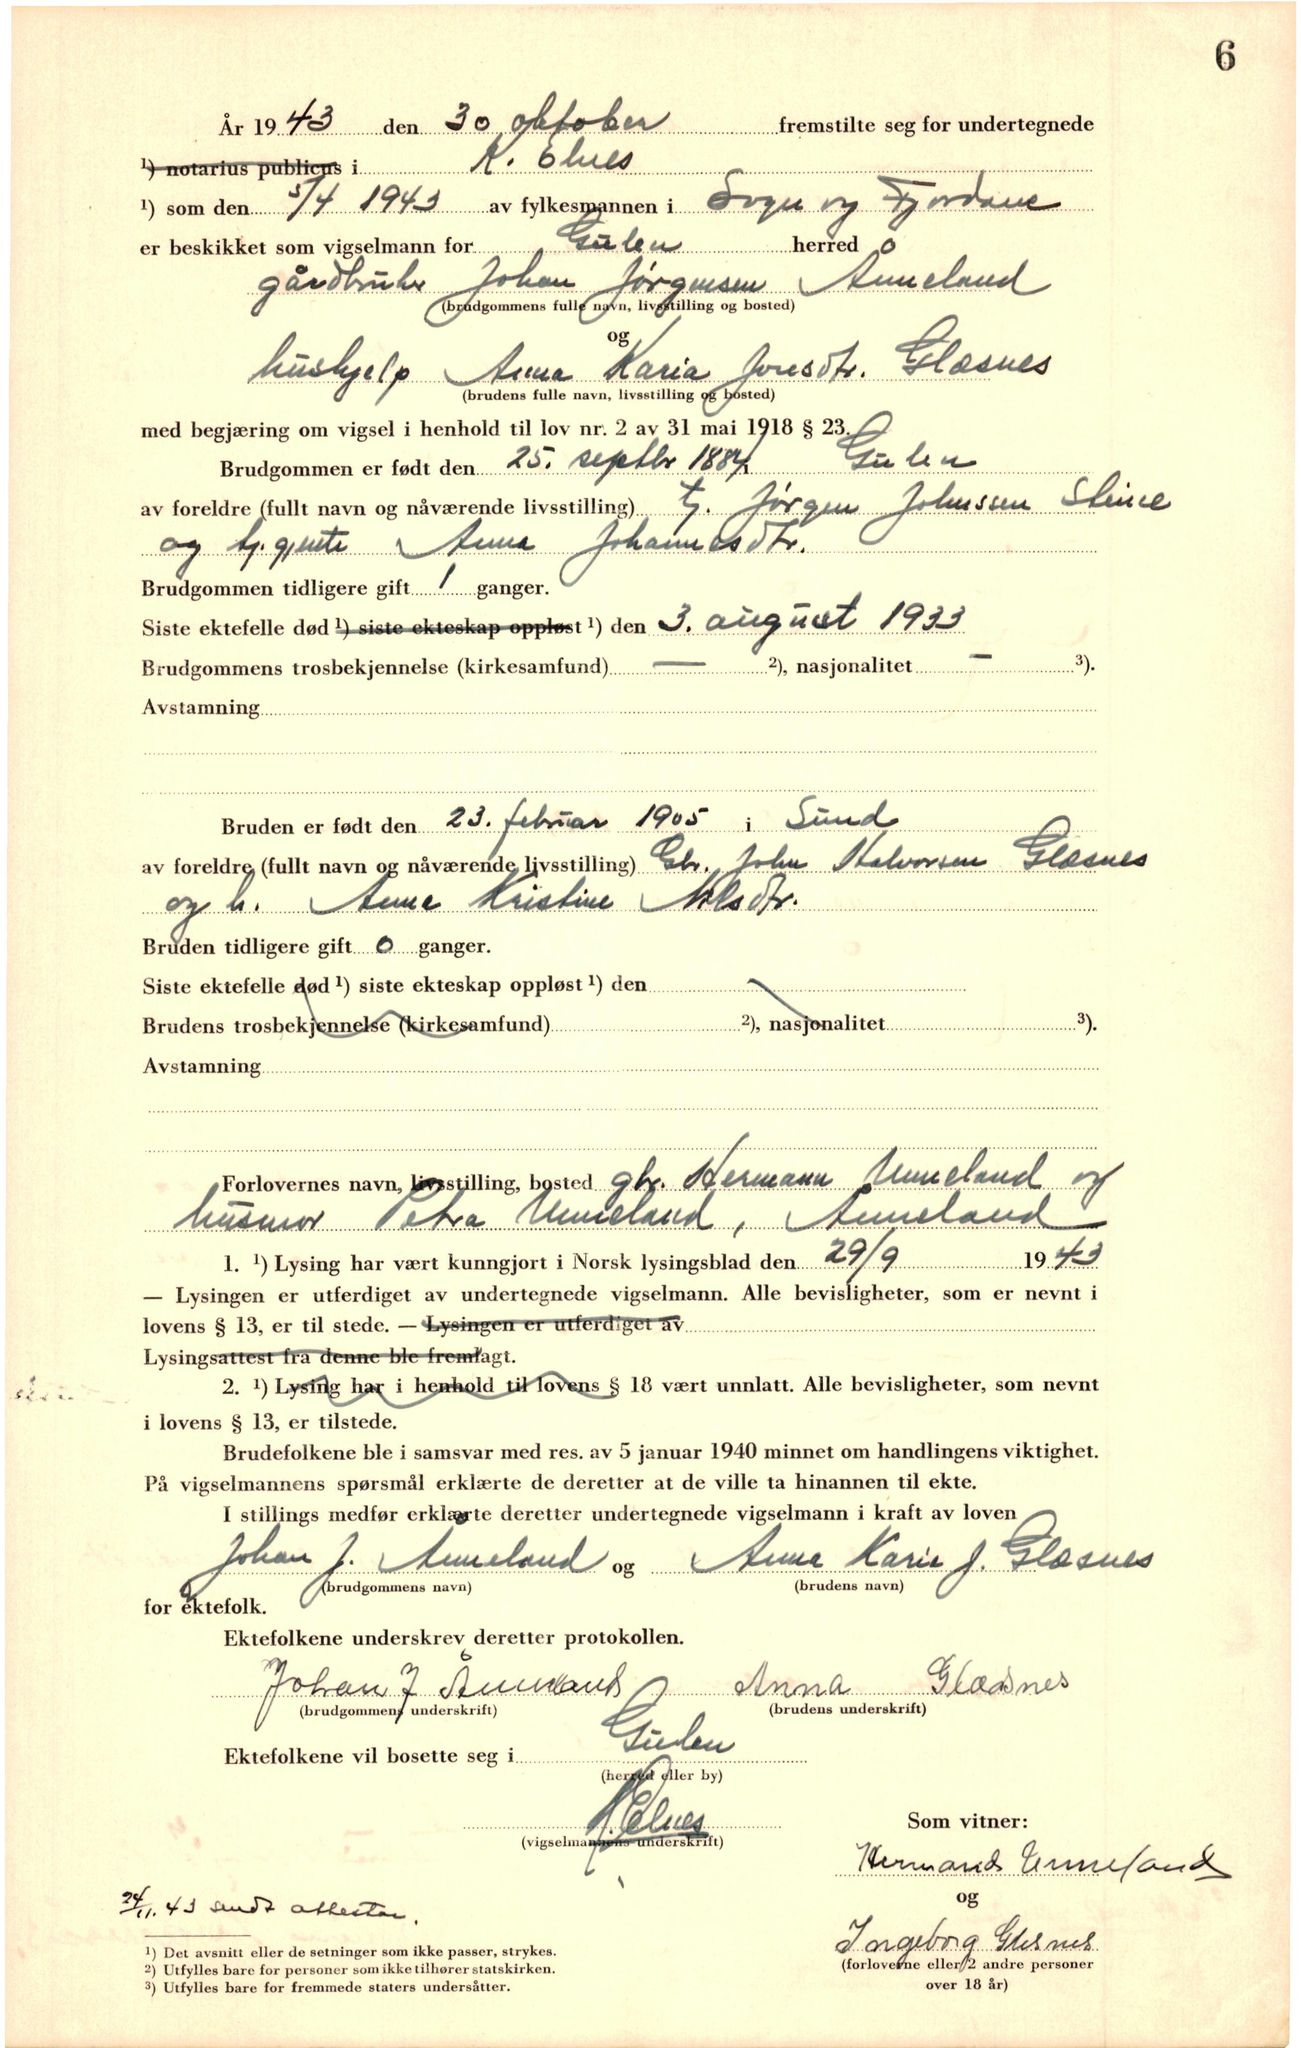 6
År 1943 den 30 oktober fremstilte seg for undertegnede
¹) notarius publicus i K. Elnes
¹) som den 5/4 1943 av fylkesmannen i Sogn og Fjordane
er beskikket som vigselmann for Gulen herred
gårdbruker Johan Jørgensen Ånneland
(brudgommens fulle navn, livsstilling og bosted)
og
hushjelp Anna Karia Jonsdtr. Glæsnes
(brudens fulle navn, livsstilling og bosted)
med begjæring om vigsel i henhold til lov nr. 2 av 31 mai 1918 § 23.
Brudgommen er født den 25. septbr 1884 i Gulen
av foreldre (fullt navn og nåværende livsstilling) tj. Jørgen Johnssen Steine
og tj.gjente Anna Johannesdtr.
Brudgommen tidligere gift 1 ganger.
Siste ektefelle død ¹) siste ekteskap oppløst ¹) den 3. august 1933
Brudgommens trosbekjennelse (kirkesamfund) — ²), nasjonalitet — ³).
Avstamning
Bruden er født den 23. februar 1905 i Sund
av foreldre (fullt navn og nåværende livsstilling) Gbr. John Halvorsen Glæsnes
og h. Anna Kristine Nilsdtr.
Bruden tidligere gift 0 ganger.
Siste ektefelle død ¹) siste ekteskap oppløst ¹) den
Brudens trosbekjennelse (kirkesamfund) ²), nasjonalitet ³).
Avstamning
Forlovernes navn, livsstilling, bosted gbr. Hermann Unneland og
husmor Petra Unneland, Ånneland
1. ¹) Lysing har vært kunngjort i Norsk lysingsblad den 29/9 1943
— Lysingen er utferdiget av undertegnede vigselmann. Alle bevisligheter, som er nevnt i
lovens § 13, er til stede. — Lysingen er utferdiget av
Lysingsattest fra denne ble fremlagt.
2. ¹) Lysing har i henhold til lovens § 18 vært unnlatt. Alle bevisligheter, som nevnt
i lovens § 13, er tilstede.
Brudefolkene ble i samsvar med res. av 5 januar 1940 minnet om handlingens viktighet.
På vigselmannens spørsmål erklærte de deretter at de ville ta hinannen til ekte.
I stillings medfør erklærte deretter undertegnede vigselmann i kraft av loven
Johan J. Ånneland og Anna Karie J. Glæsnes
(brudgommens navn) (brudens navn)
for ektefolk.
Ektefolkene underskrev deretter protokollen.
Johan J Ånneland Anna Glæsnes
(brudgommens underskrift) (brudens underskrift)
Ektefolkene vil bosette seg i Gulen
(herred eller by)
K. Elnes
(vigselmannens underskrift)
Som vitner:
Hermand Unneland
og
Ingeborg Glesnes
(forloverne eller 2 andre personer
over 18 år)
24/11. 43 sendt attester.
¹) Det avsnitt eller de setninger som ikke passer, strykes.
²) Utfylles bare for personer som ikke tilhører statskirken.
³) Utfylles bare for fremmede staters undersåtter.